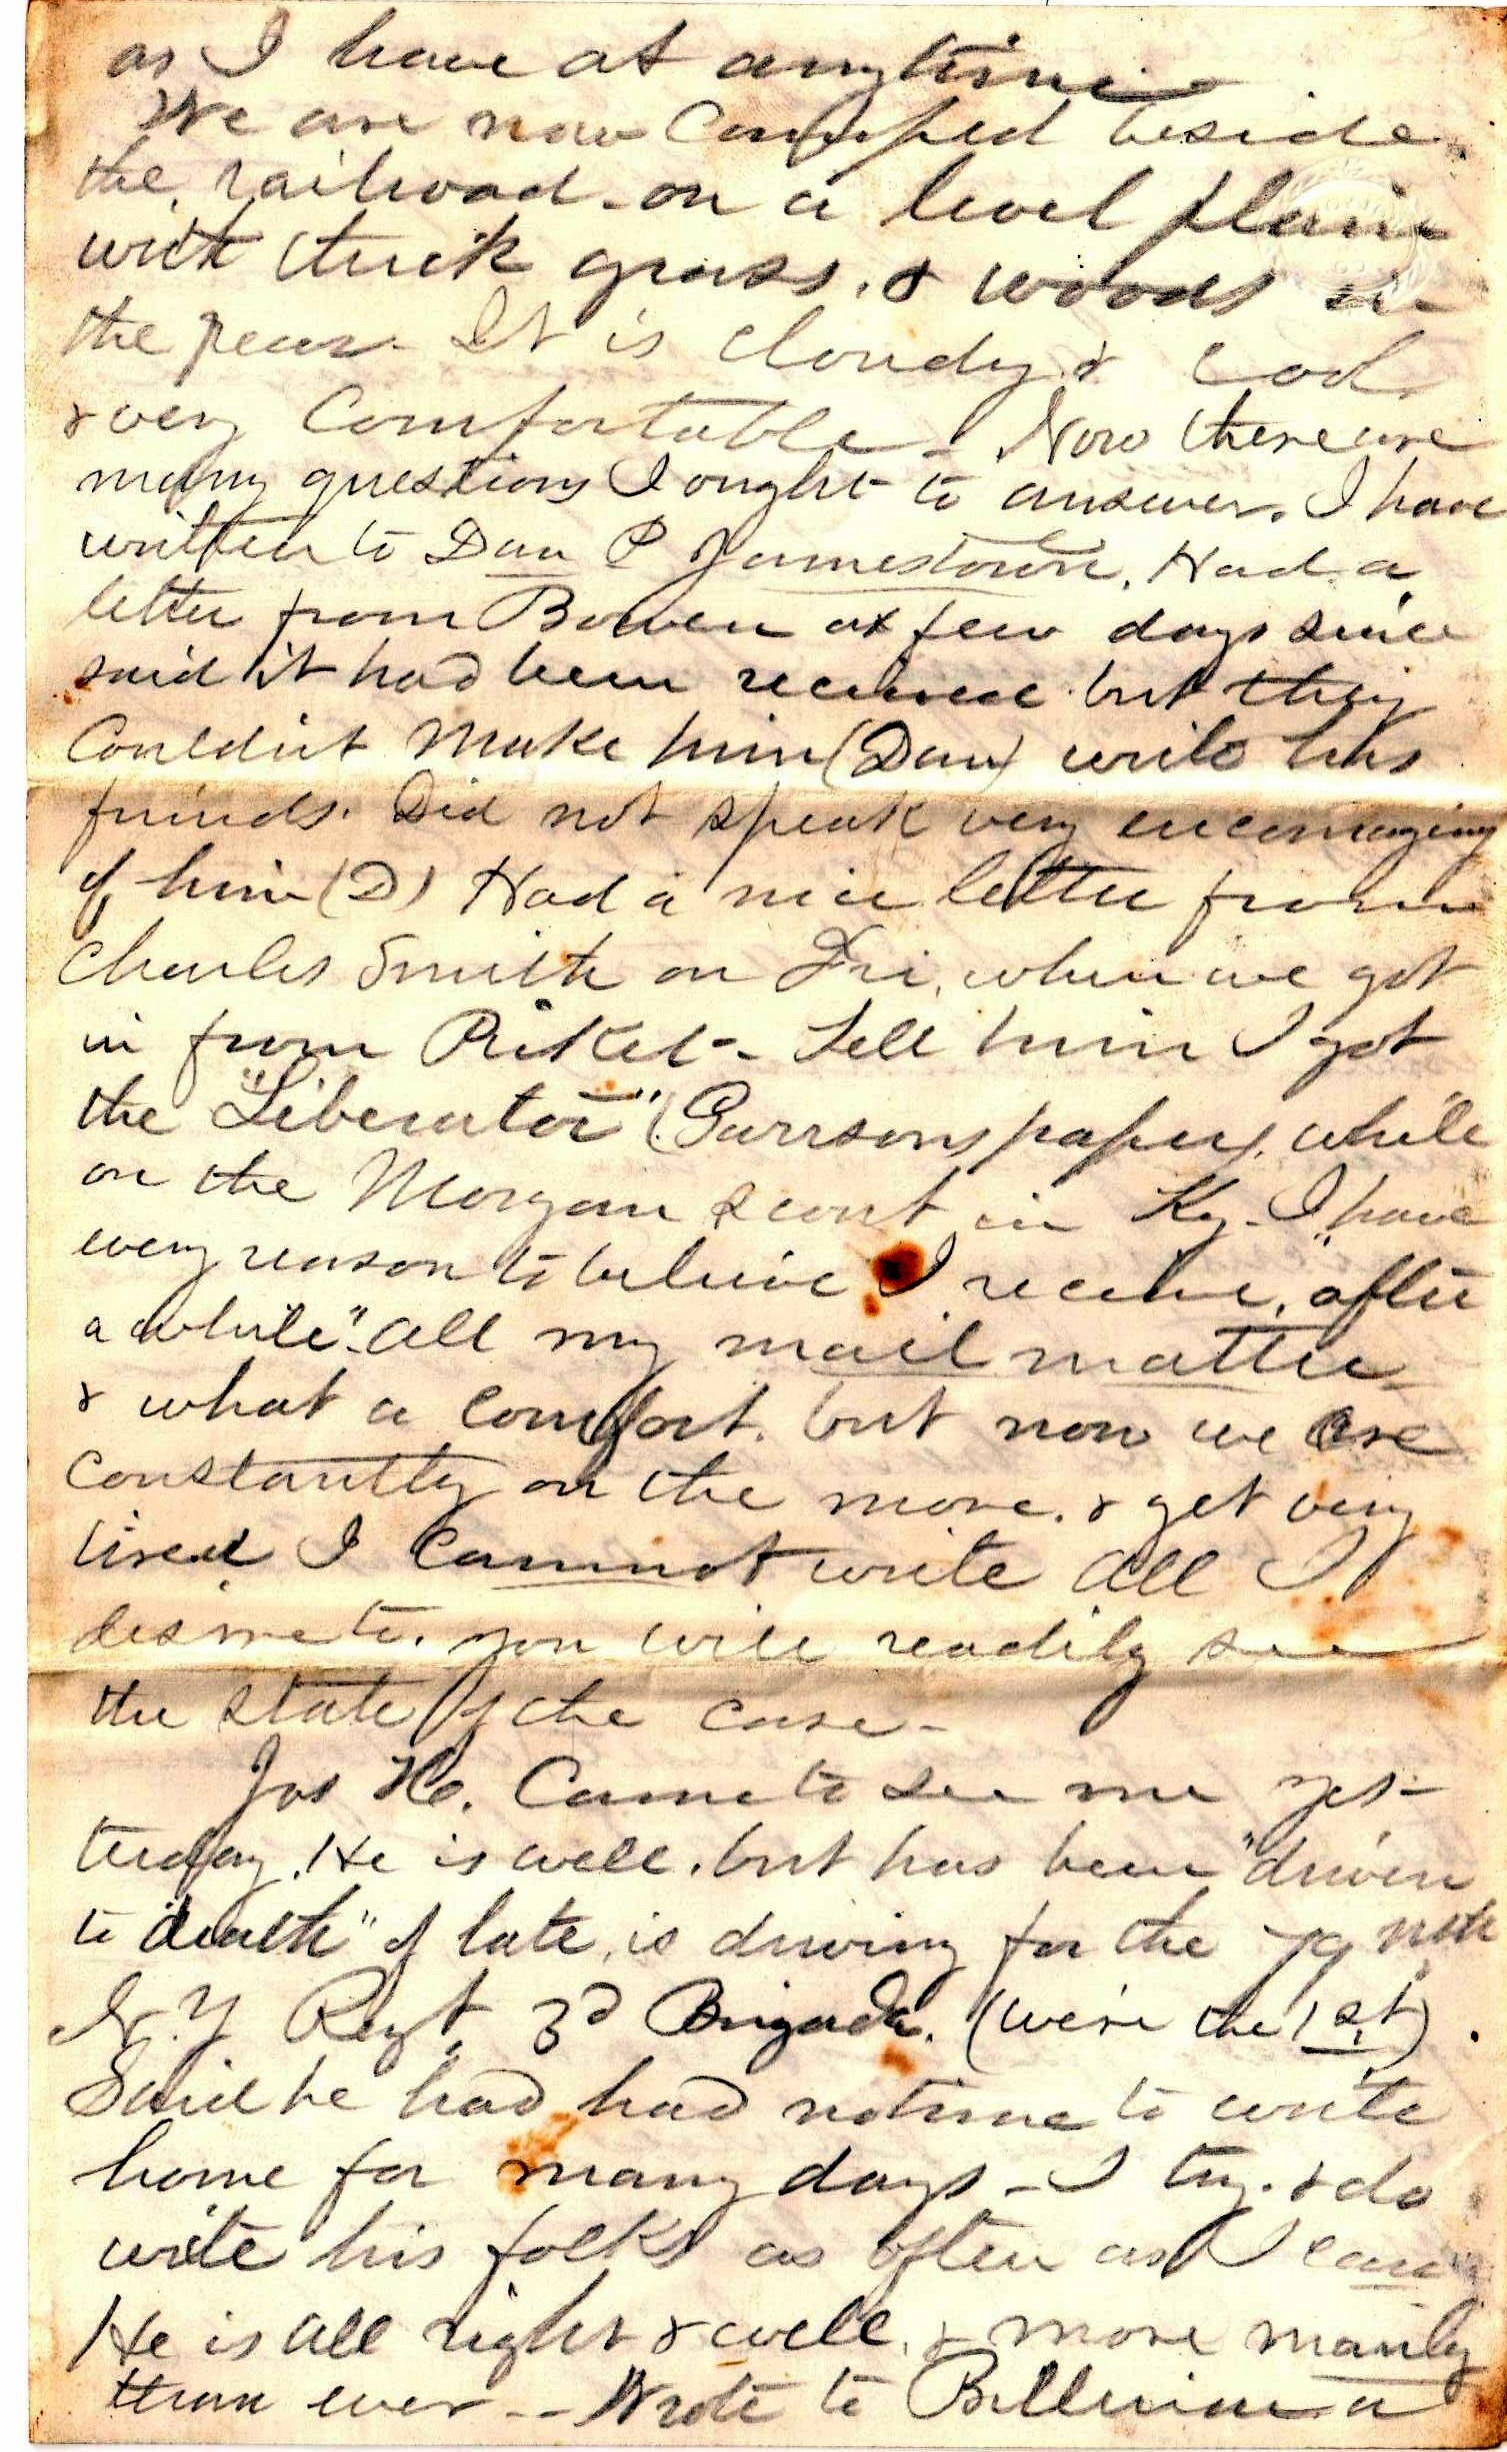 as I have at anytime
We are now Camped beside
the railroad - on a level plain
with thick grass. & woods in
the rear - It is Cloudy & cool
& very Comfortable - Now there are
many questions I ought to answer. I have
written to Dan P Jamestown. Had a
letter from Bowen a few days since
said it had been received but they
Couldn't Make him (Dan) write his
friends. Did not speak very encouraging
of him (D) Had a nice letter from
Charles Smith on Fri. when we got
in from Picket - Tell him I got
the "Liberator" (Garrsons paper) while
on the Morgan scout in Ky - I have
every reason to believe I receive, "after
a while". all my mail matter
& what a comfort. but now we are
Constantly on the move. & get very
tired I cannot write all I
desire to. you will readily see
the state of the case -
Jos Come to see me yes-
terday. He is well. but has been "driven
to death" of late, is driving for the 79
N.Y Regt. 3d Brigade. (We're the 1st).
Said he had had no time to write
home for many days - I try. & do
write his folks as often as I can
He is all right & well, & more manly
than ever -- Wrote to a